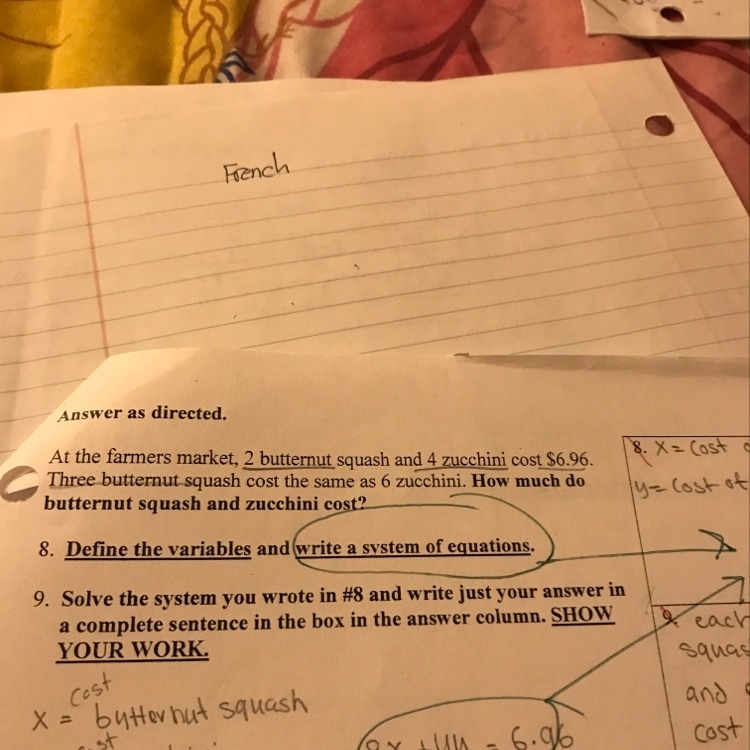 French
Answer as directed.
At the farmers market, 2 butternut squash and 4 zucchini cost $6.96.
Three butternut squash cost the same as 6 zucchini. How much do
butternut squash and zucchini cost?
8. Define the variables and write a system of equations.
9. Solve the system you wrote in #8 and write just your answer in
a complete sentence in the box in the answer column. SHOW
YOUR WORK.
8. x = cost
y = cost of
9. each
squas
and
cost
cost
x = butternut squash
= 6.96